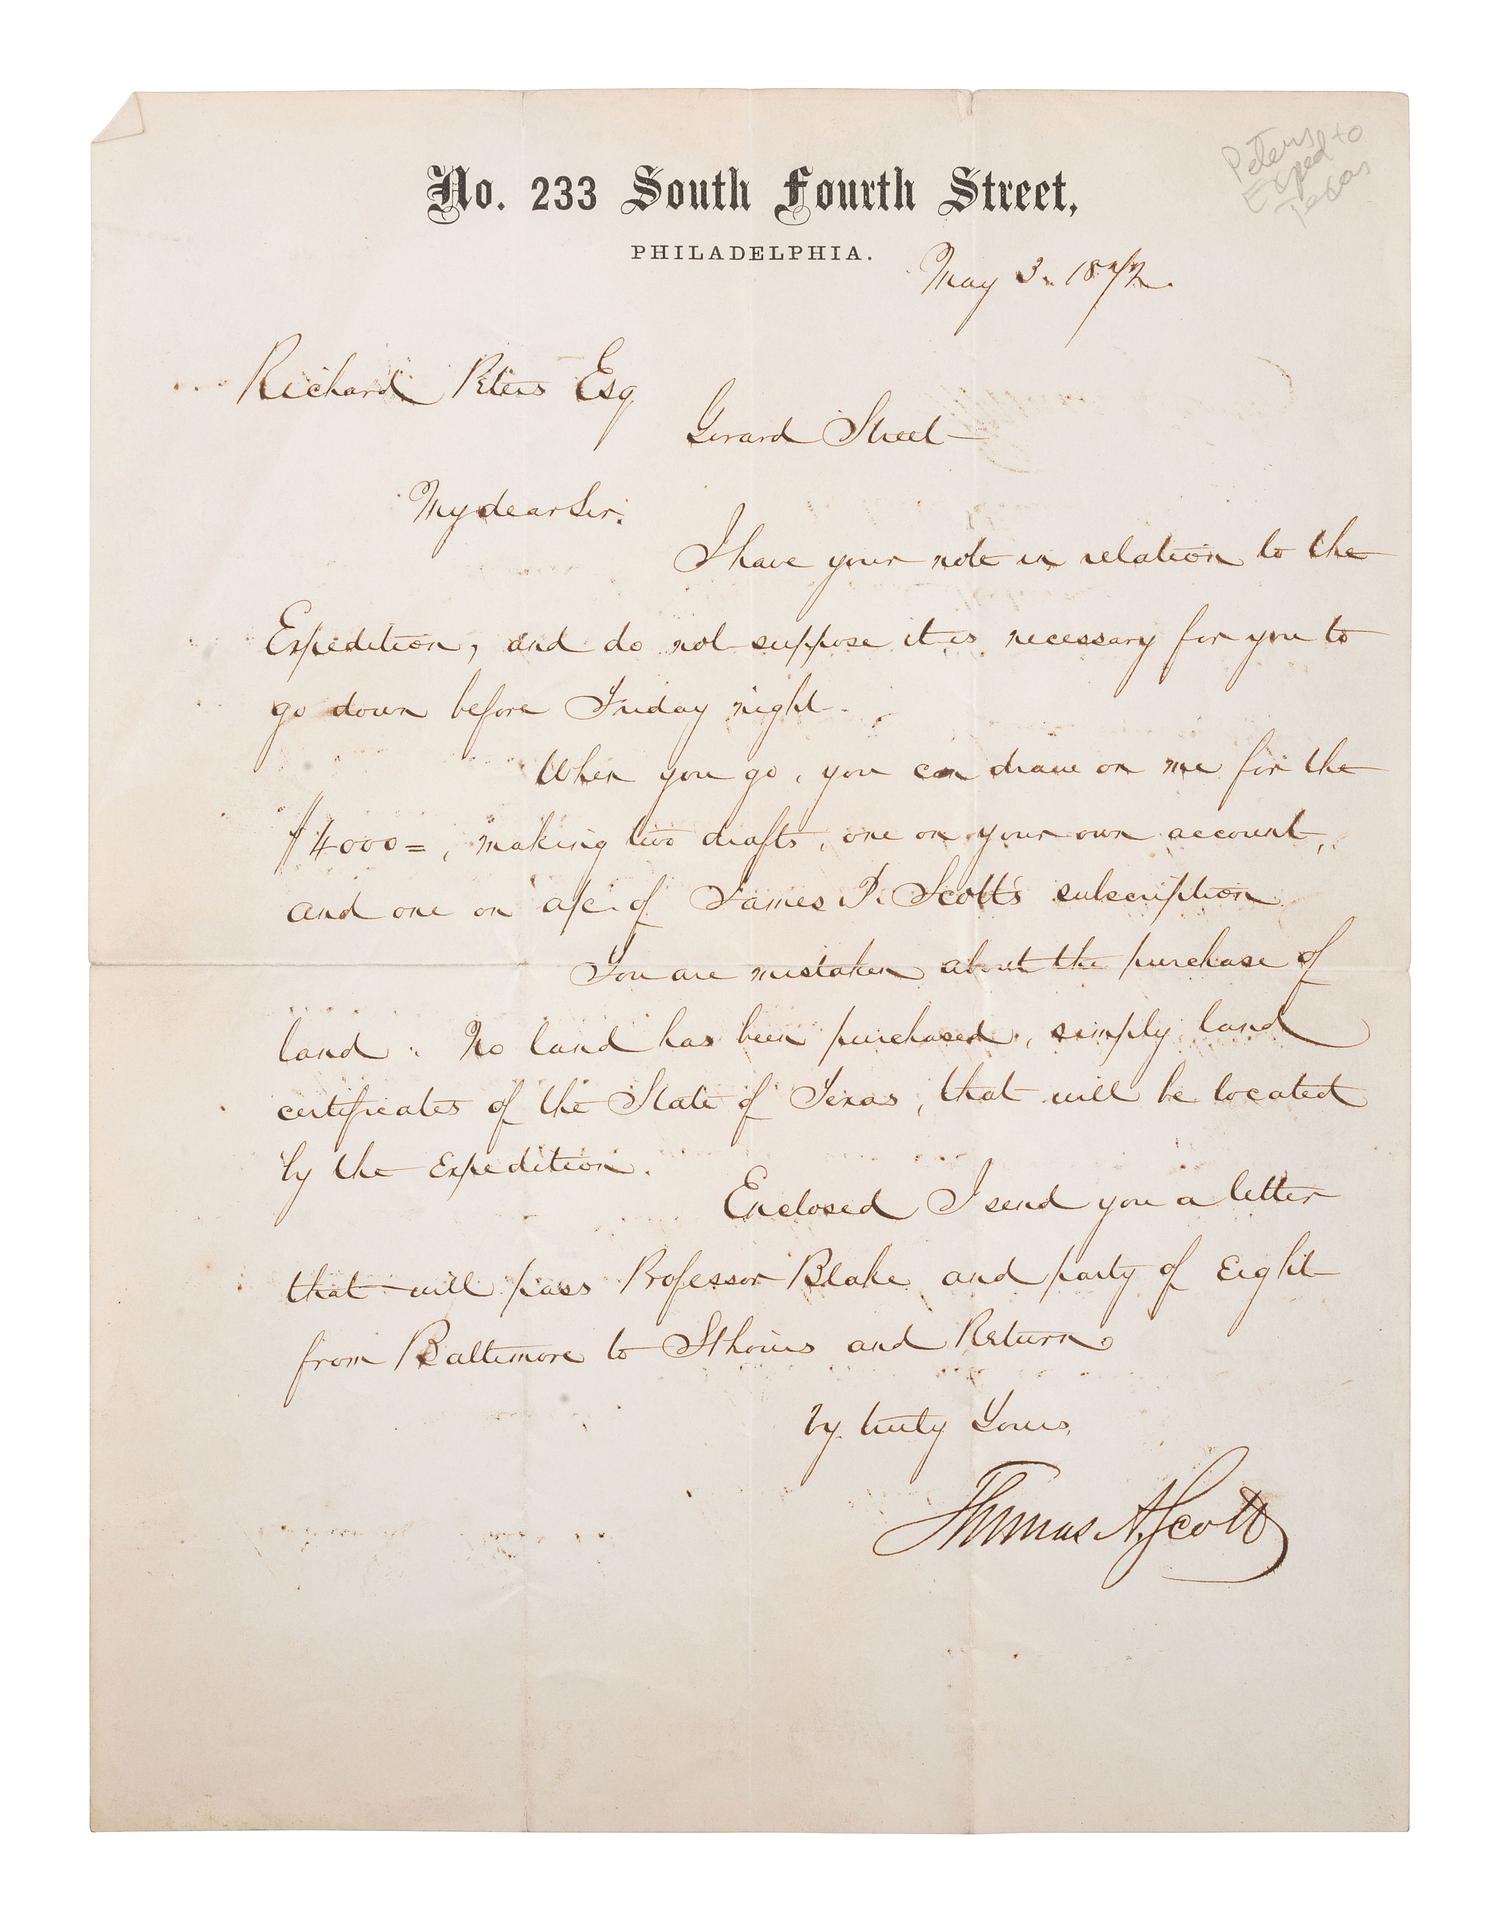 No. 233 South Fourth Street,
PHILADELPHIA.
Peters
Exped to
Texas
May 3. 1872.
Richard Peters Esq
Girard Street
My dear Sir.
I have your note in relation to the
Expedition, and do not suppose it is necessary for you to
go down before Friday night.
When you go, you can draw on me for the
$4000=, making two drafts, one on your own account,
and one on a/c of James P. Scott's subscription
You are mistaken about the purchase of
land. No land has been purchased, simply land
certificates of the State of Texas, that will be located
by the Expedition.
Enclosed I send you a letter
that will pass Professor Blake and party of Eight
from Baltimore to St Louis and Return.
Vy truly Yours,
Thomas A. Scott